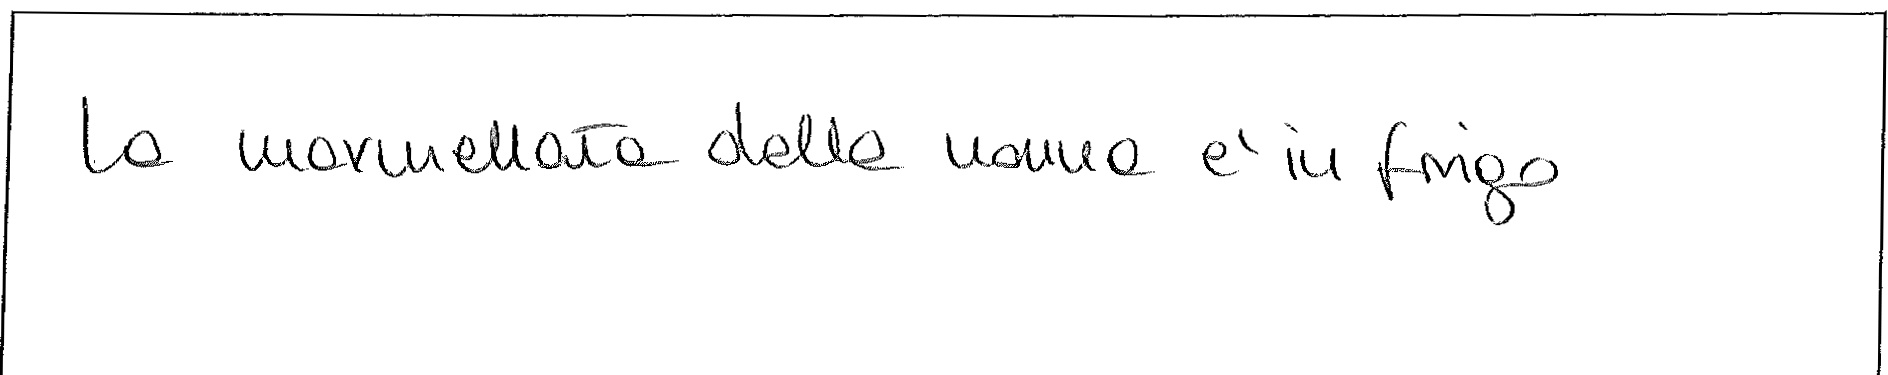 La marmellata della nonna e' in frigo